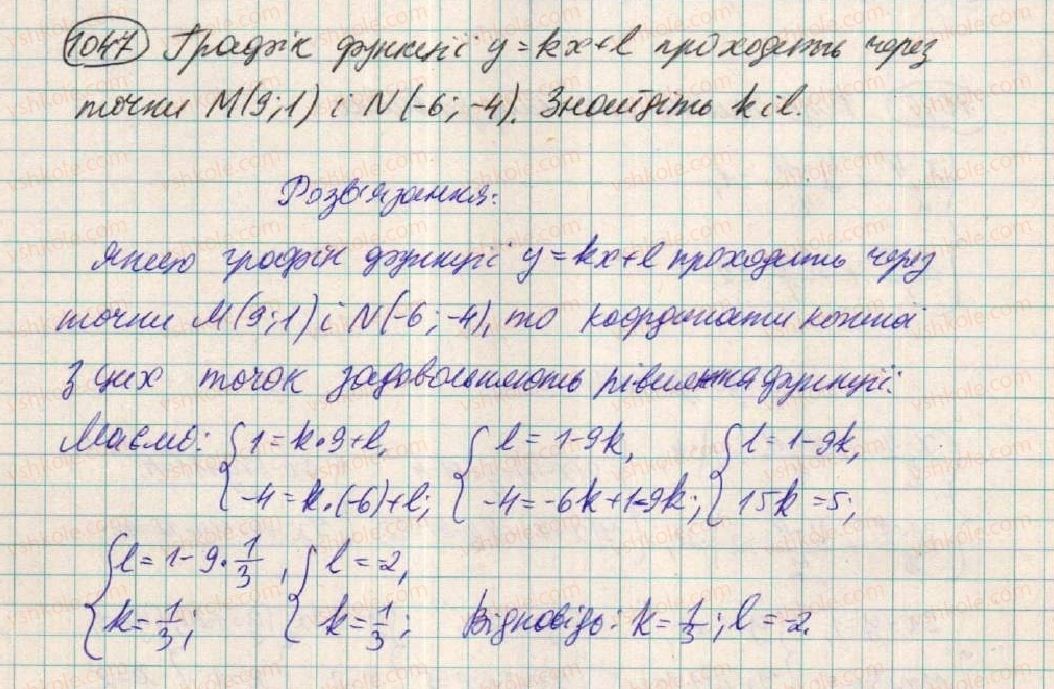 1047 Графік функції y = kx + l проходить через
точки M(9; 1) і N(-6; -4). Знайдіть k і l.
Розв'язання:
Якщо графік функції y = kx + l проходить через
точки M(9; 1) і N(-6; -4), то координати кожної
з цих точок задовольняють рівняння функції.
Маємо: { 1 = k · 9 + l, -4 = k · (-6) + l; { l = 1 - 9k, -4 = -6k + 1 - 9k; { l = 1 - 9k, 15k = 5;
{ l = 1 - 9 · 1/3, k = 1/3; { l = -2, k = 1/3; Відповідь: k = 1/3; l = -2.